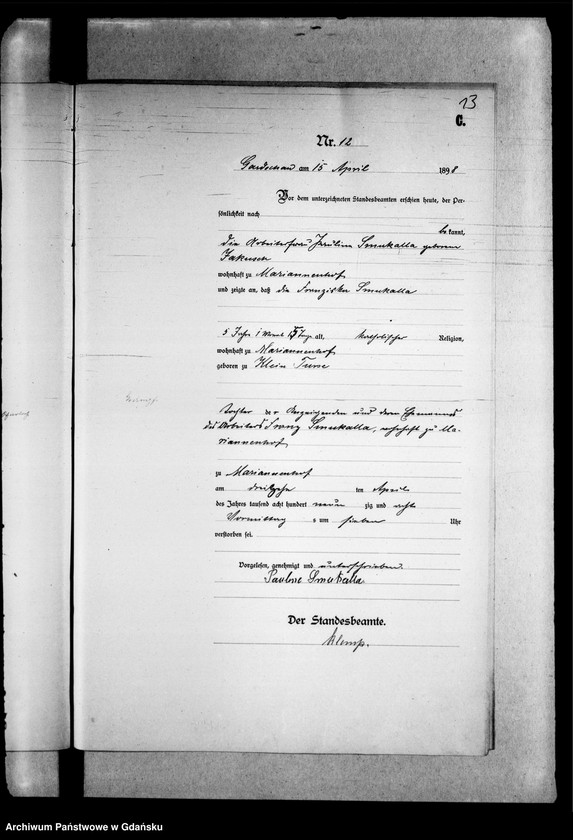 13
C.
Nr. 12
Gardschau am 15 April 1898
Vor dem unterzeichneten Standesbeamten erschien heute, der Per-
sönlichkeit nach
bekannt,
die Arbeiterfrau Paulina Smukalla geborene
Jakusch
wohnhaft zu Mariannenhof
und zeigte an, daß die Franziska Smukalla
5 Jahr 1 Monat Tage alt, katholischer Religion,
wohnhaft zu Mariannenhof
geboren zu Klein Turse
Tochter der Anzeigenden und deren Ehemannes
des Arbeiters Franz Smukalla, wohnhaft zu Ma-
riannenhof
zu Mariannenhof
am dreizehn ten April
des Jahres tausend acht hundert neun zig und acht
Vormittag s um sieben Uhr
verstorben sei.
Vorgelesen, genehmigt und unterschrieben.
Pauline Smukalla
Der Standesbeamte.
Klemp.
Archiwum Państwowe w Gdańsku